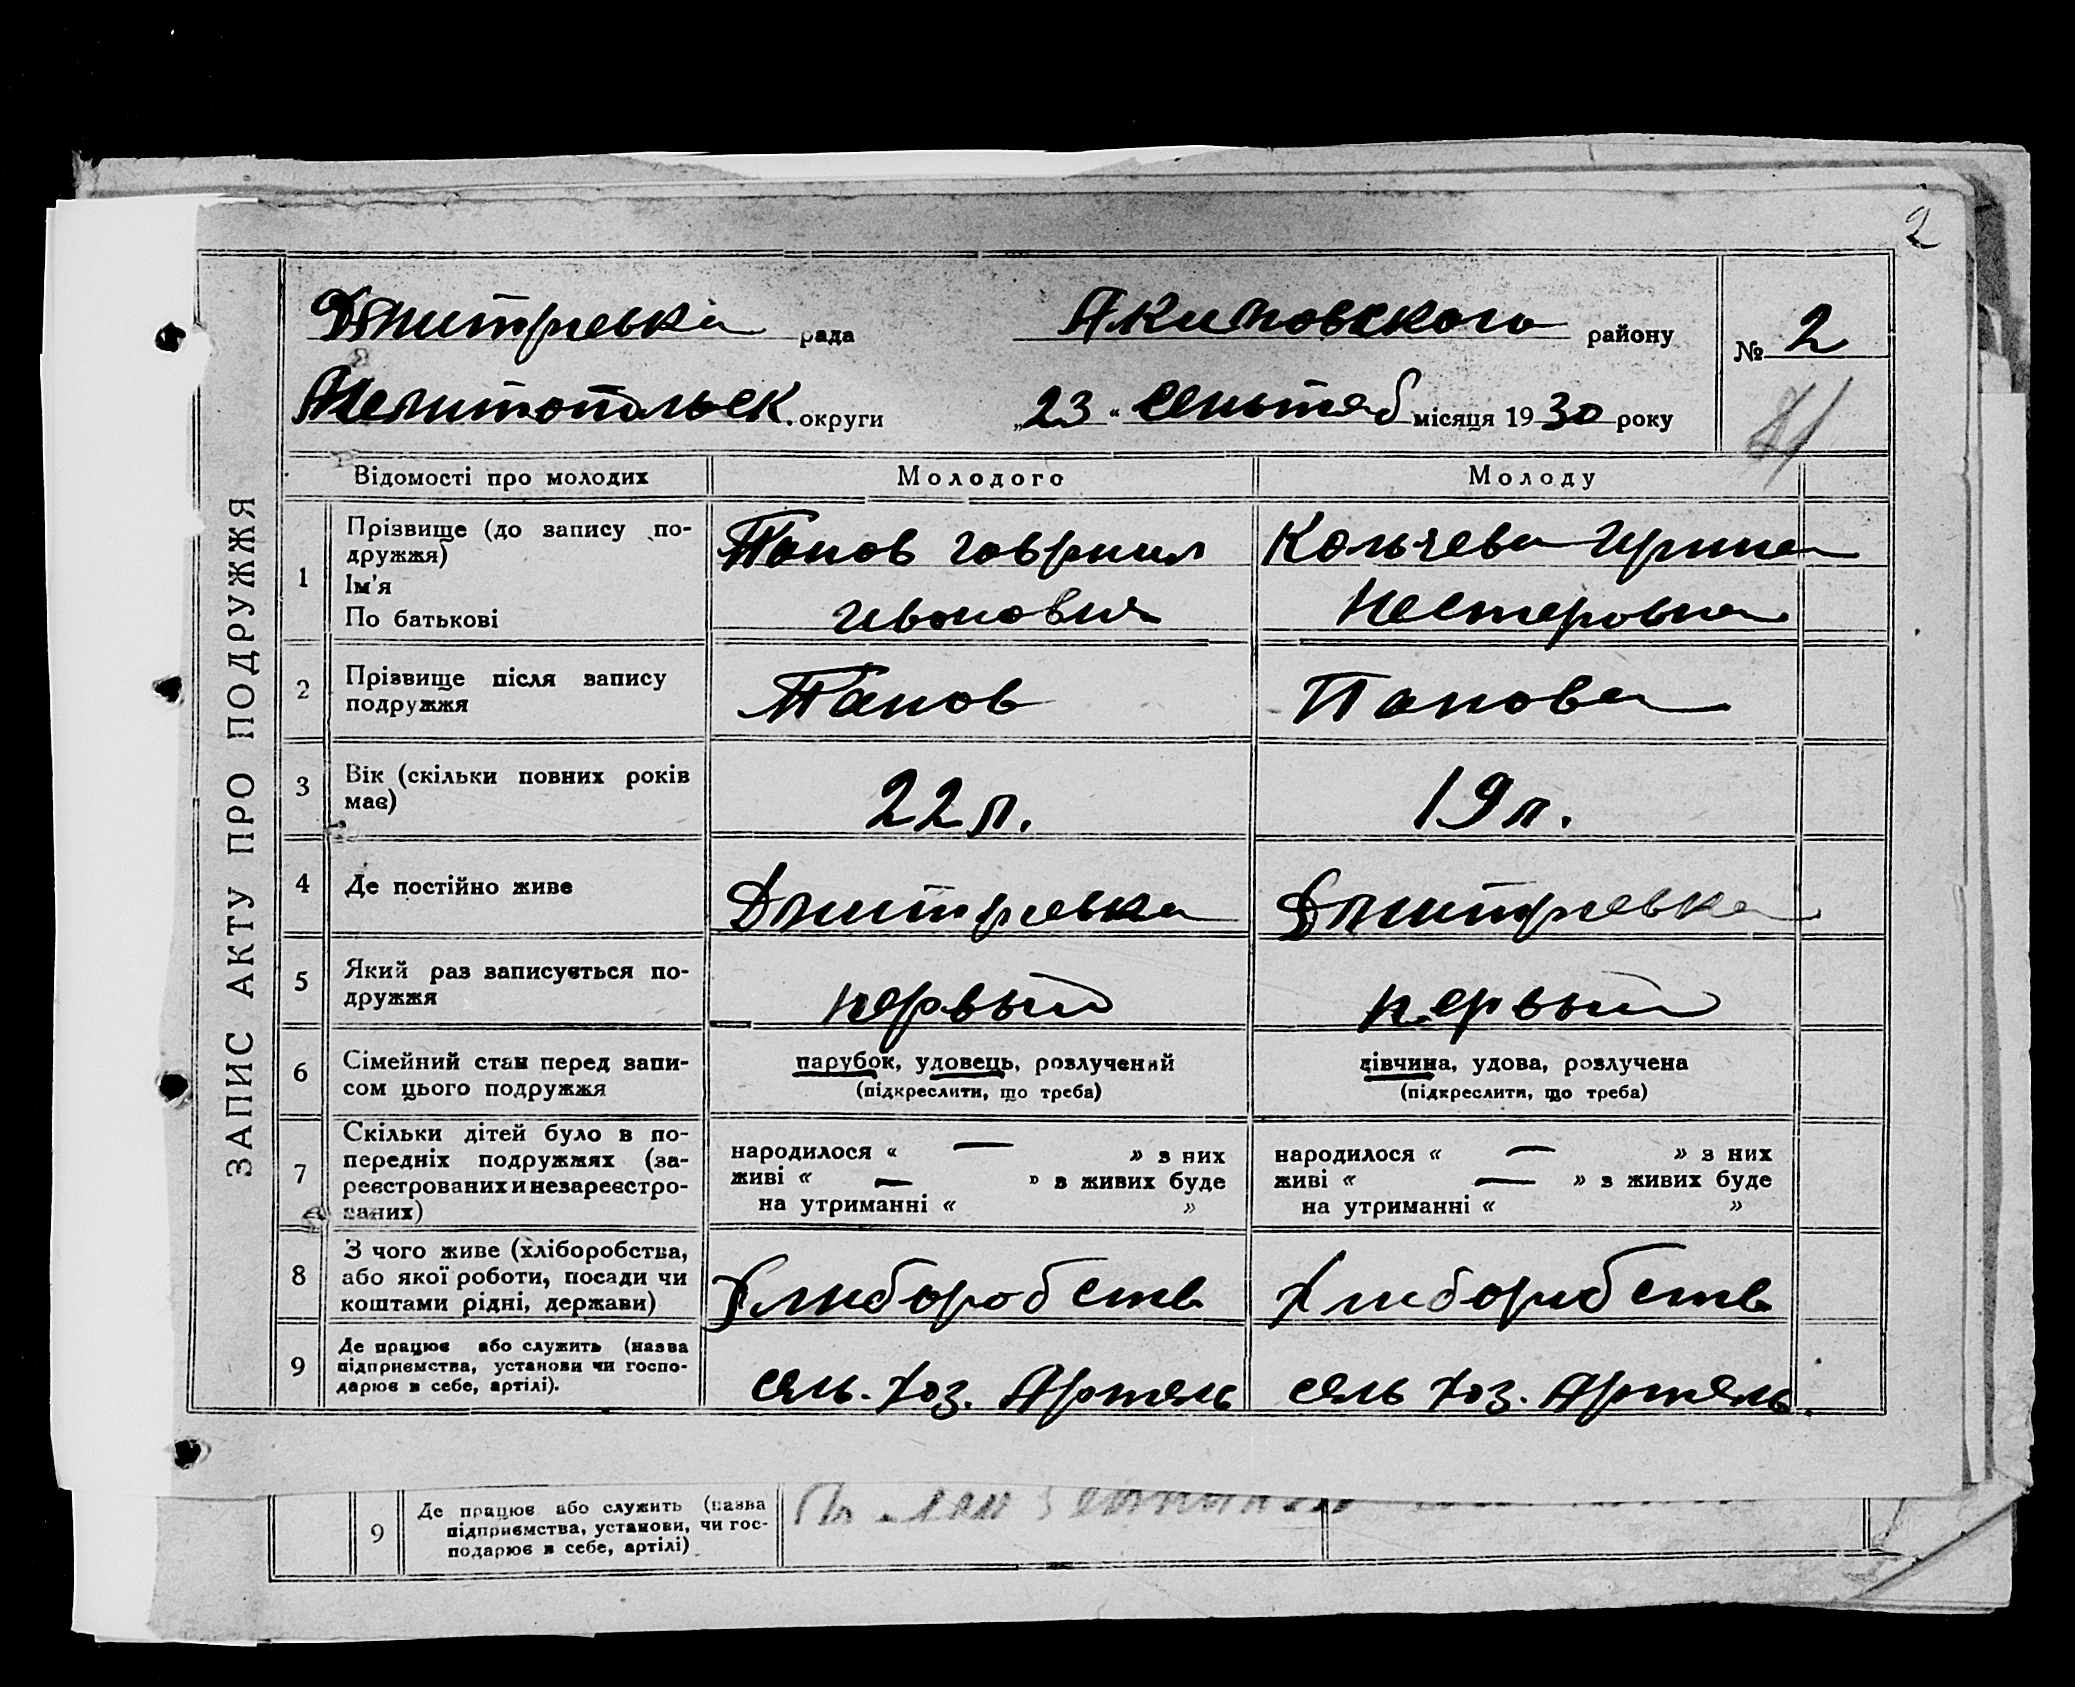 2
ЗАПИС АКТУ ПРО ПОДРУЖЖЯ
Дмитриевка рада Акимовского району
№ 2
Мелитопольск. округи „23“ сентяб місяця 1930 року
Відомості про молодих Молодого Молоду
1 Прізвище (до запису по-
дружжя)
Ім'я
По батькові
Панов Гаврил
Иванович
Кольчева Ирина
Нестеровна
2 Прізвище після запису
подружжя
Панов Панова
3 Вік (скільки повних років
має)
22 л. 19 л.
4 Де постійно живе Дмитриевка Дмитриевка
5 Який раз записується по-
дружжя
первый первый
6 Сімейний стан перед запи-
сом цього подружжя
парубок, удовець, розлучений
(підкреслити, що треба)
дівчина, удова, розлучена
(підкреслити, що треба)
7 Скільки дітей було в по-
передніх подружжях (за-
реєстрованих и незареєстро-
ваних)
народилося « — » з них
живі « — » з живих буде
на утриманні « »
народилося « — » з них
живі « — » з живих буде
на утриманні « »
8 З чого живе (хліборобства,
або якої роботи, посади чи
коштами рідні, держави)
Хлиборобств Хлиборобств
9 Де працює або служить (назва
підприємства, установи чи госпо-
дарює в себе, артілі).
сель. хоз. Артель сель хоз. Артель.
9 Де працює або служить (назва
підприємства, установи, чи гос-
подарює в себе, артілі)